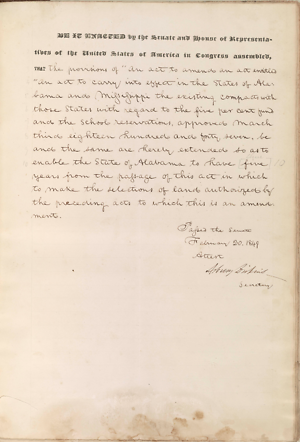 BE IT ENACTED by the Senate and House of Representa-
tives of the United States of America in Congress assembled,
THAT the provisions of "An act to amend an act entitled
"An act to carry into effect in the States of Ala-
bama and Mississippi the existing compacts with
those States with regard to the five per cent fund
and the School reservations, approved March
third eighteen hundred and forty seven, be
and the same are hereby extended so as to
enable the State of Alabama to have five
years from the passage of this act in which
to make the selections of land authorized by
the preceding acts to which this is an amend-
ment.
Passed the Senate
February 20. 1849
Attest
Asbury Dickins
Secretary